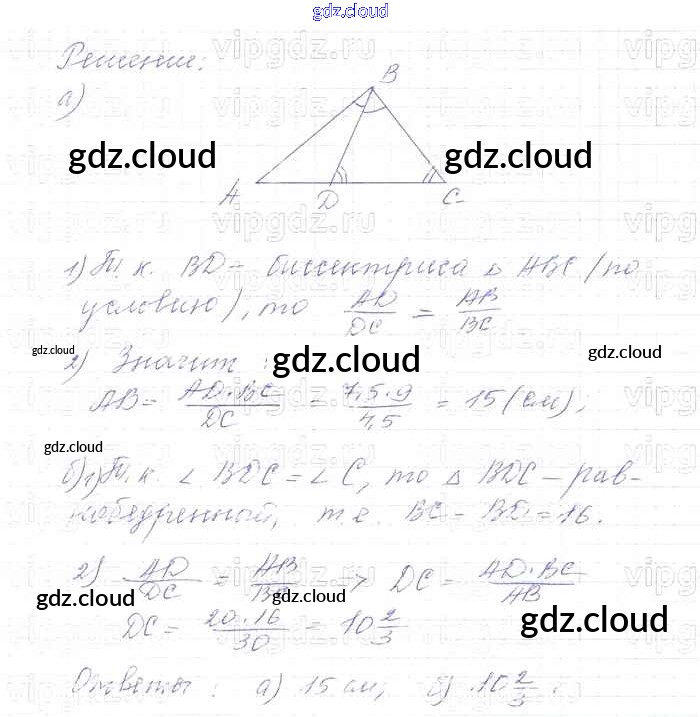 gdz.cloud
Решение:
а)
B
gdz.cloud gdz.cloud
A D C
1) Т.к. BD - биссектриса △ ABC (по
условию), то AD/DC = AB/BC
gdz.cloud gdz.cloud gdz.cloud
2) Значит:
AB = AD·BC/DC = 7,5·9/4,5 = 15 (см);
gdz.cloud
б) 1) Т.к. ∠ BDC = ∠ C, то △ BDC - рав-
нобедренный, т.е. BC = BD = 16.
2) AD/DC = AB/BC => DC = AD·BC/AB
gdz.cloud gdz.cloud gdz.cloud
DC = 20·16/30 = 10 2/3
Ответы: а) 15 см; б) 10 2/3.
vipgdz.ru